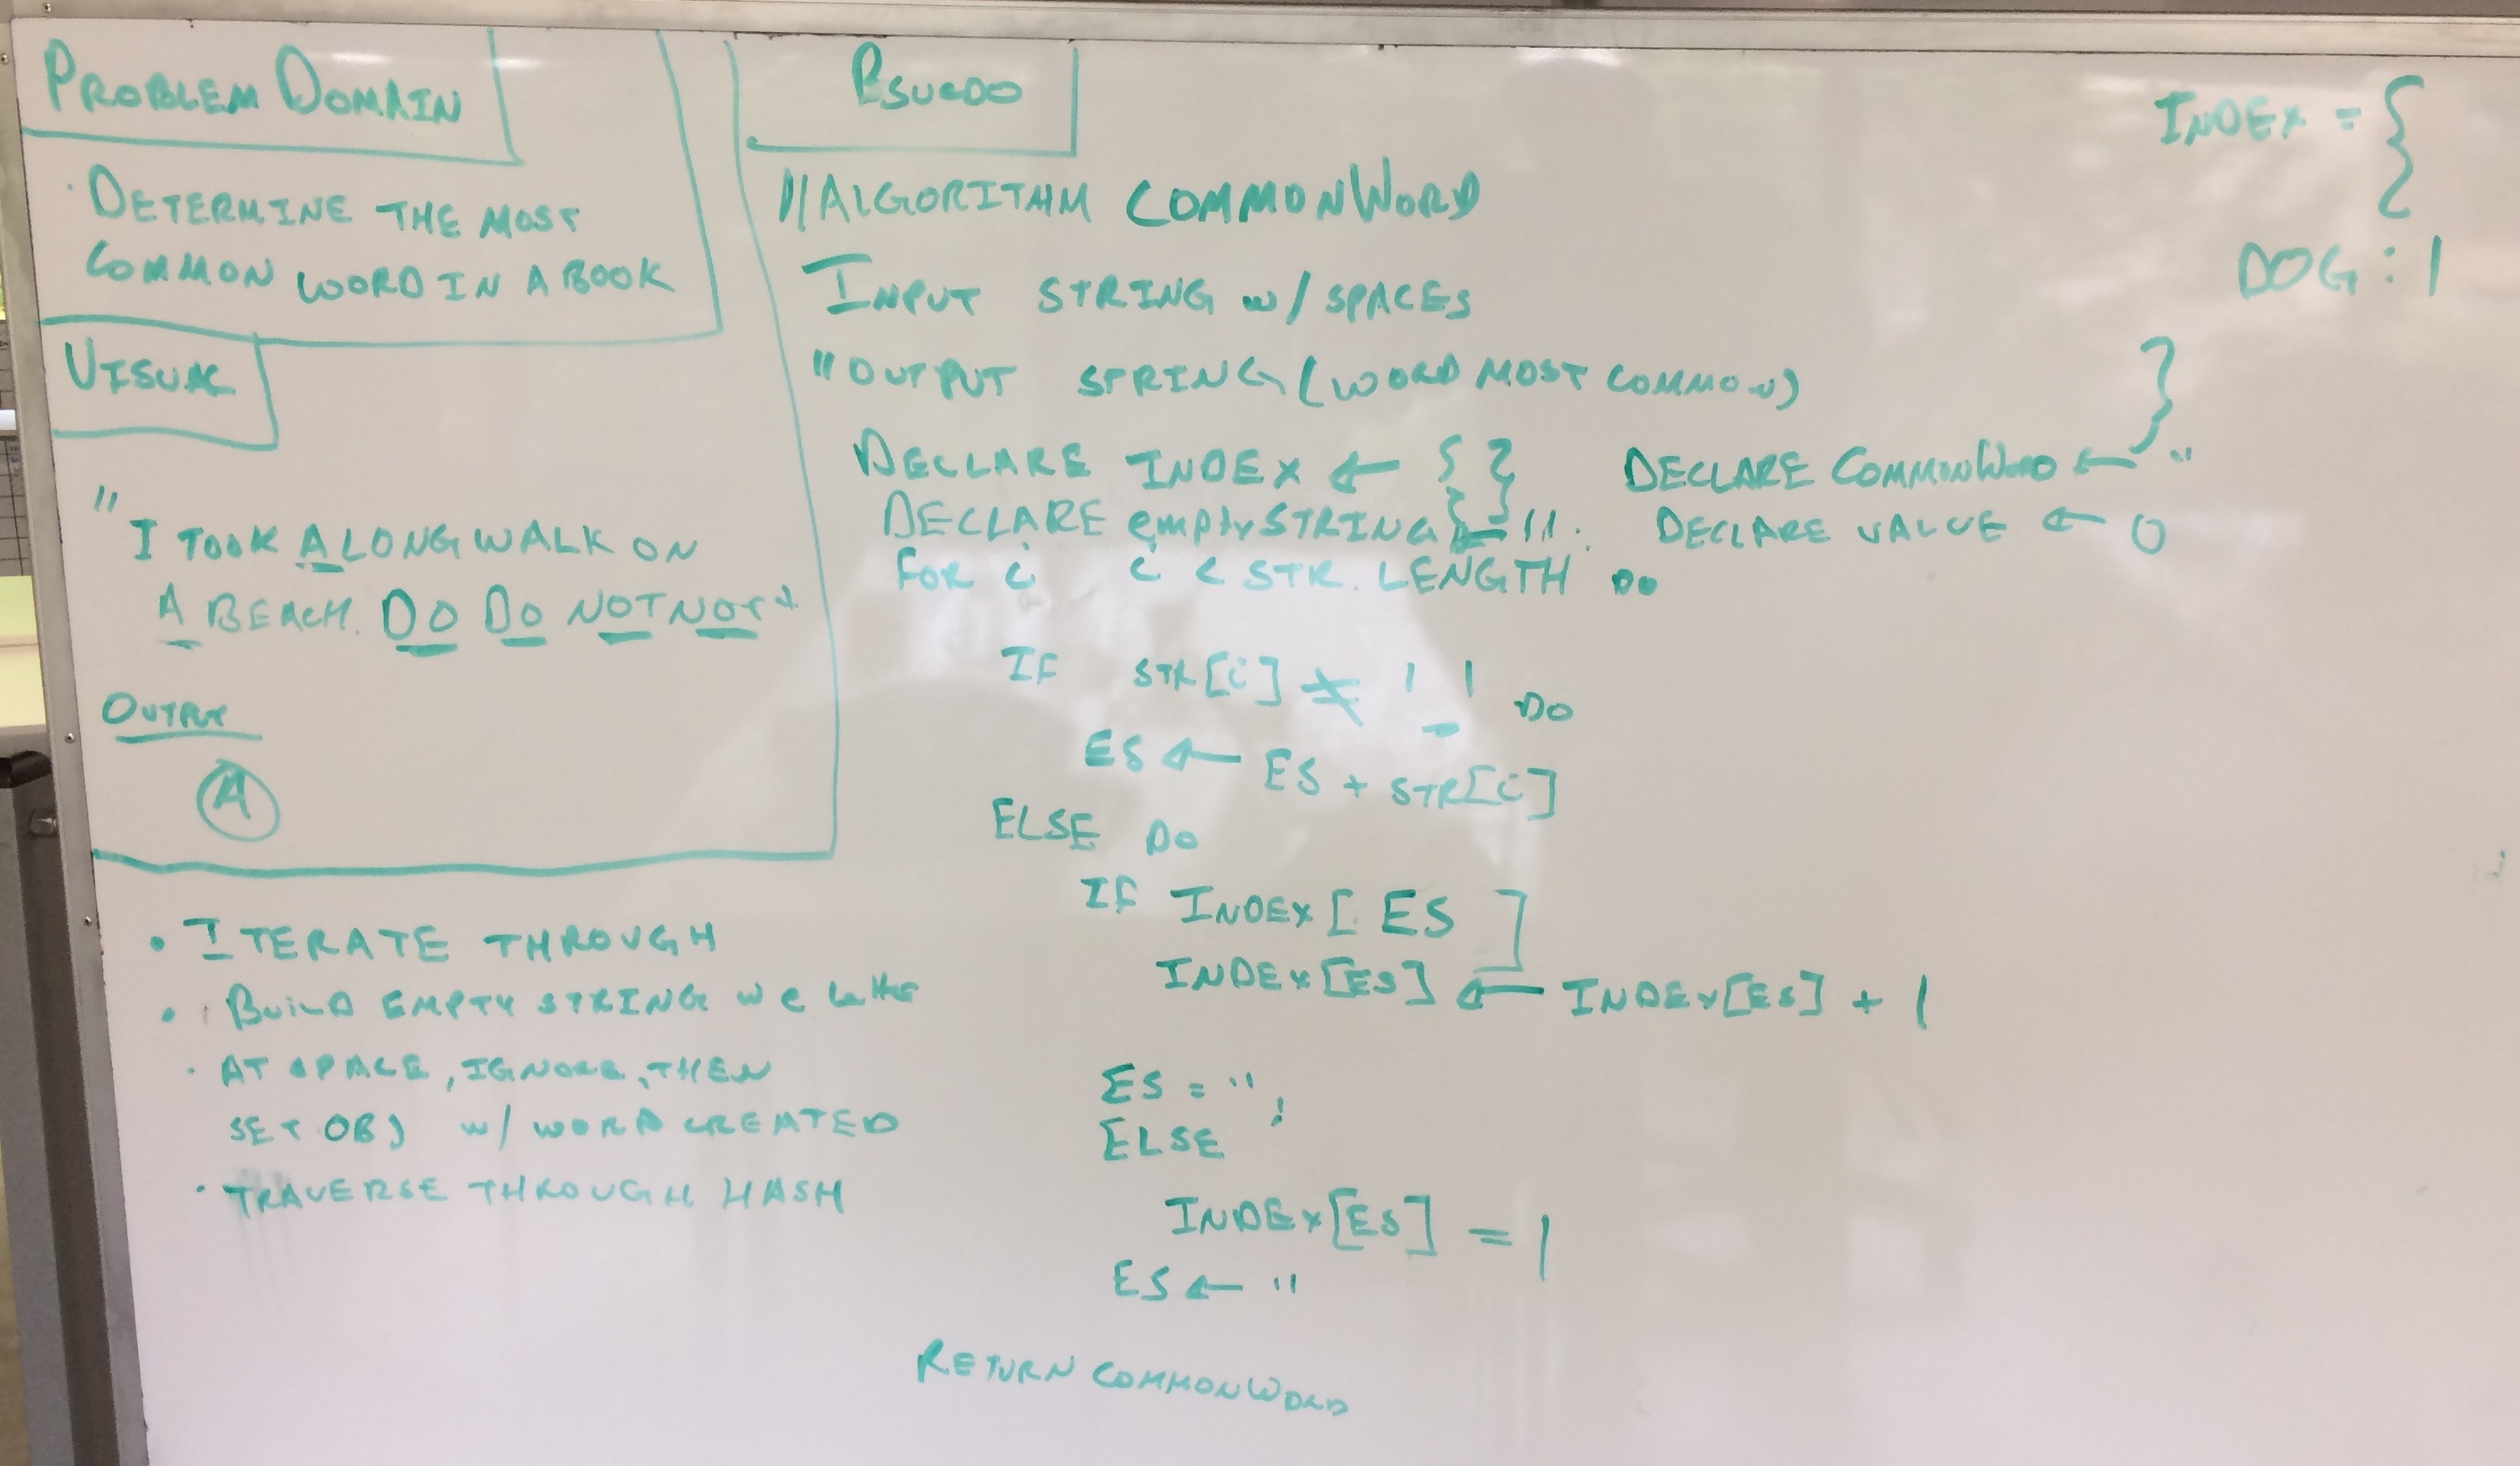 PROBLEM DOMAIN
· DETERMINE THE MOST
COMMON WORD IN A BOOK
VISUAL
"I TOOK A LONG WALK ON
A BEACH. DO DO NOT NOT"
OUTPUT
A
• ITERATE THROUGH
• BUILD EMPTY STRING W
• AT SPACE, IGNORE, THEN
SET OBJ W/ WORD CREATED
• TRAVERSE THROUGH HASH
PSUEDO
//ALGORITHM COMMONWORD
INPUT STRING w/ SPACES
"OUTPUT STRING (WORD MOST COMMON)
DECLARE INDEX ← { }
DECLARE emptySTRING ← ''.
FOR i i < STR. LENGTH DO
IF STR[i] ≠ ' _ ' DO
ES ← ES + STR[i]
ELSE DO
IF INDEX[ ES ]
INDEX[ES] ← INDEX[ES] + 1
ES = '' ;
ELSE
INDEX[ES] = 1
ES ← ''
RETURN COMMONWORD
INDEX = {
DOG : 1
}
DECLARE COMMONWORD ← ''
DECLARE VALUE ← 0